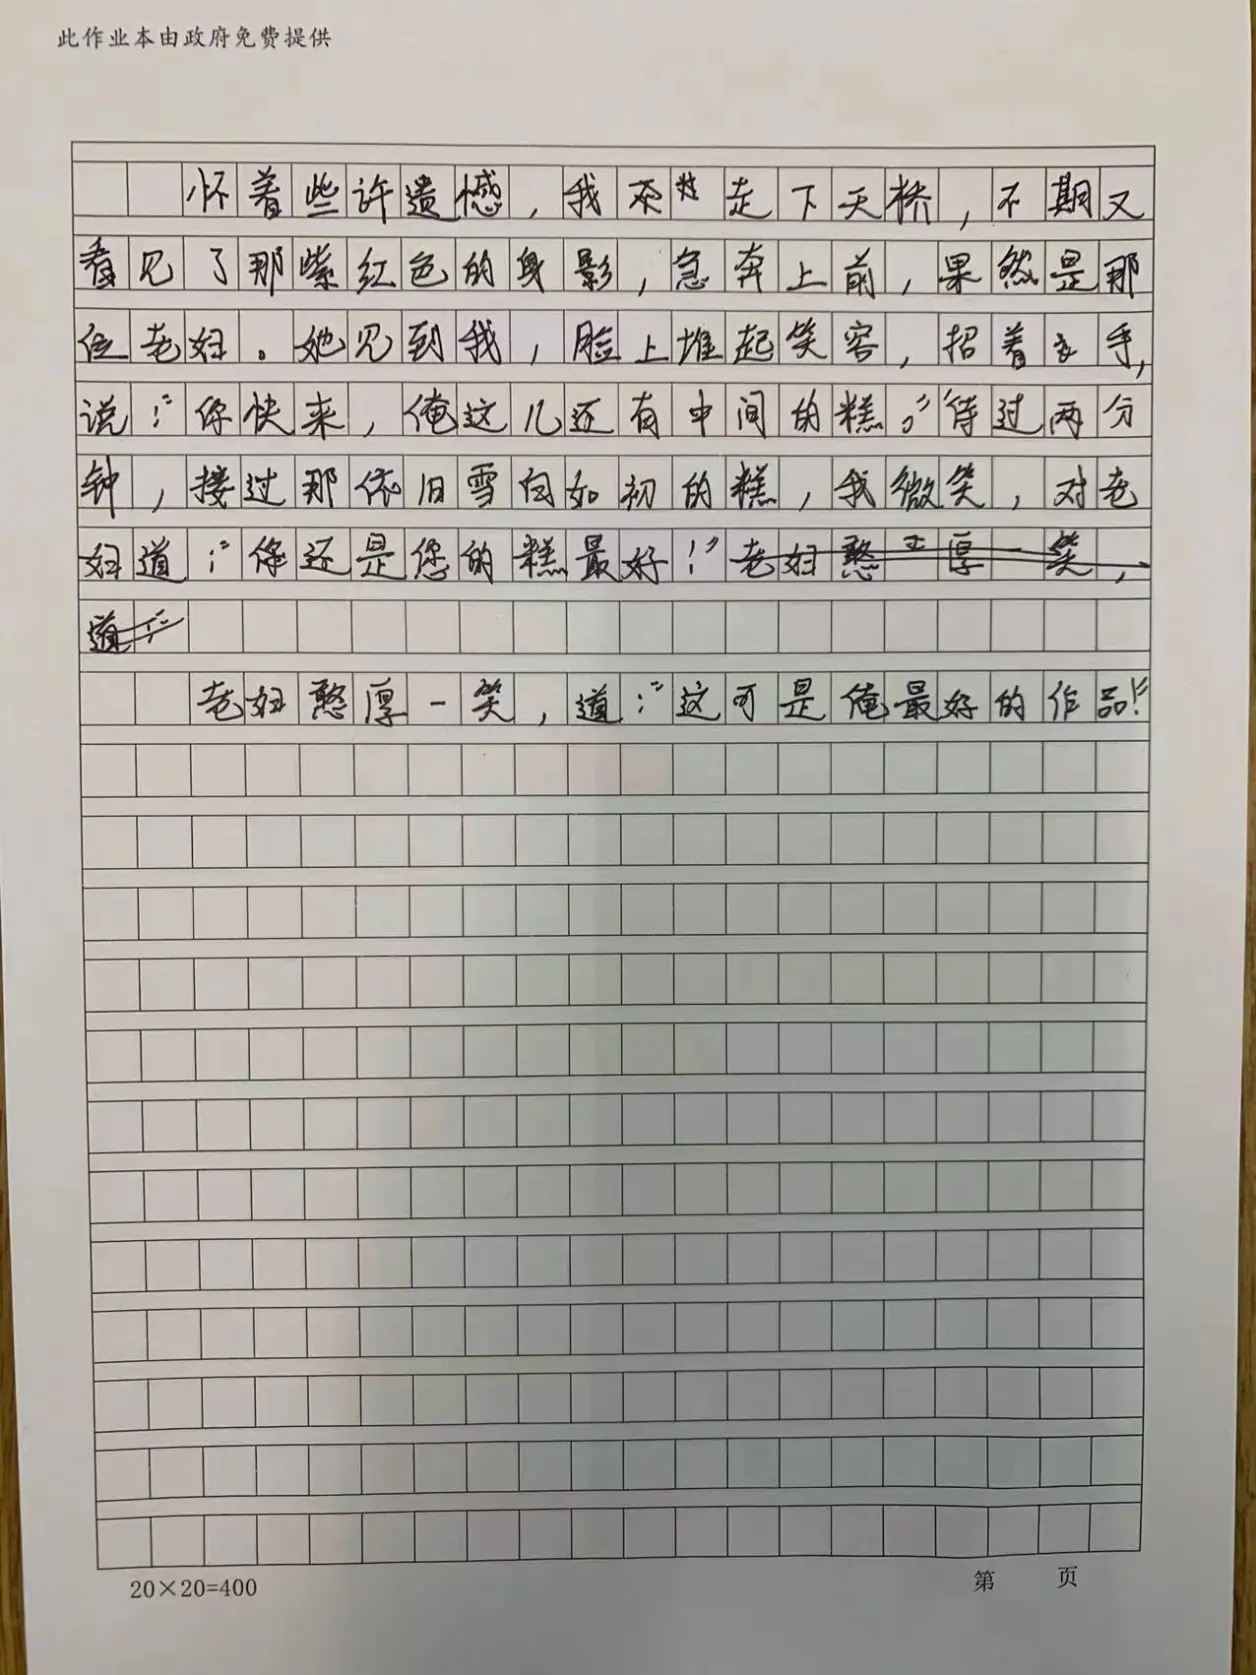 此作业本由政府免费提供
怀着些许遗憾，我走下天桥，不期又
看见了那紫红色的身影，急奔上前，果然是那
位老妇。她见到我，脸上堆起笑容，招着手，
说：“你快来，俺这儿还有中间的糕。”待过两分
钟，接过那依旧雪白如初的糕，我微笑，对老
妇道：“您还是您的糕最好！”老妇憨厚一笑，
道：“
老妇憨厚一笑，道：“这可是俺最好的作品！”
20×20=400
第 页